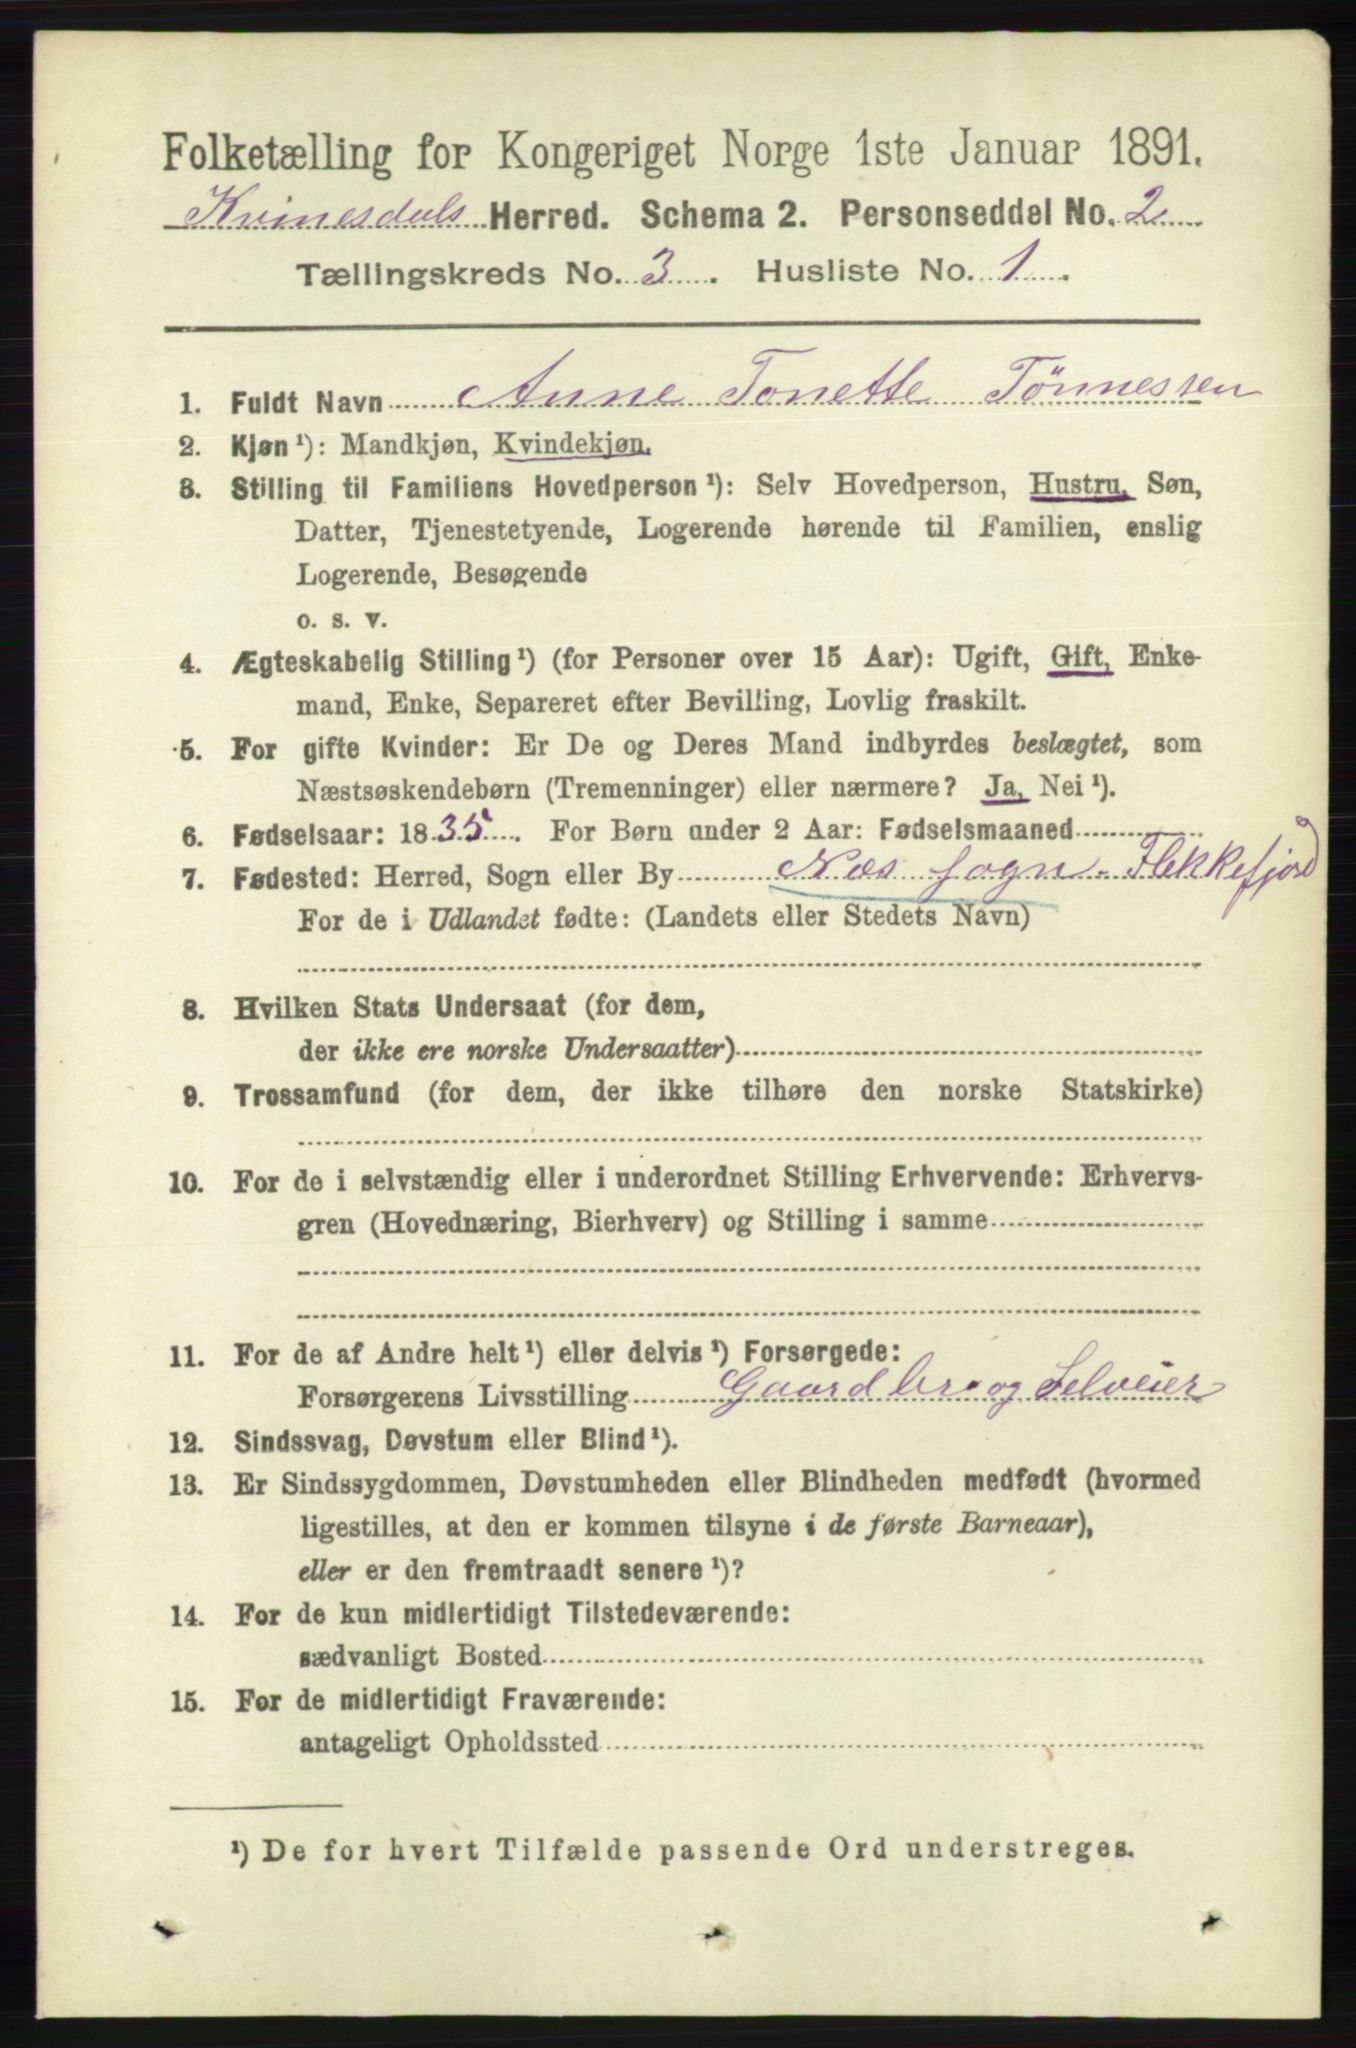 Folketælling for Kongeriget Norge 1ste Januar 1891.
Kvinesdals Herred. Schema 2. Personseddel No. 2
Tællingskreds No. 3. Husliste No. 1.
1. Fuldt Navn Anne Tonette Tönnessen
2. Kjøn ¹): Mandkjøn, Kvindekjøn.
3. Stilling til Familiens Hovedperson ¹): Selv Hovedperson, Hustru, Søn,
Datter, Tjenestetyende, Logerende hørende til Familien, enslig
Logerende, Besøgende
o. s. v.
4. Ægteskabelig Stilling ¹) (for Personer over 15 Aar): Ugift, Gift, Enke-
mand, Enke, Separeret efter Bevilling, Lovlig fraskilt.
5. For gifte Kvinder: Er De og Deres Mand indbyrdes beslægtet, som
Næstsøskendebørn (Tremenninger) eller nærmere? Ja, Nei ¹).
6. Fødselsaar: 1835. For Børn under 2 Aar: Fødselsmaaned
7. Fødested: Herred, Sogn eller By Næs sogn. Flekkefjord
For de i Udlandet fødte: (Landets eller Stedets Navn)
8. Hvilken Stats Undersaat (for dem,
der ikke ere norske Undersaatter)
9. Trossamfund (for dem, der ikke tilhøre den norske Statskirke)
10. For de i selvstændig eller i underordnet Stilling Erhvervende: Erhvervs-
gren (Hovednæring, Bierhverv) og Stilling i samme
11. For de af Andre helt ¹) eller delvis ¹) Forsørgede:
Forsørgerens Livsstilling Gaardbr. og Selveier
12. Sindssvag, Døvstum eller Blind ¹).
13. Er Sindssygdommen, Døvstumheden eller Blindheden medfødt (hvormed
ligestilles, at den er kommen tilsyne i de første Barneaar),
eller er den fremtraadt senere ¹)?
14. For de kun midlertidigt Tilstedeværende:
sædvanligt Bosted
15. For de midlertidigt Fraværende:
antageligt Opholdssted
¹) De for hvert Tilfælde passende Ord understreges.